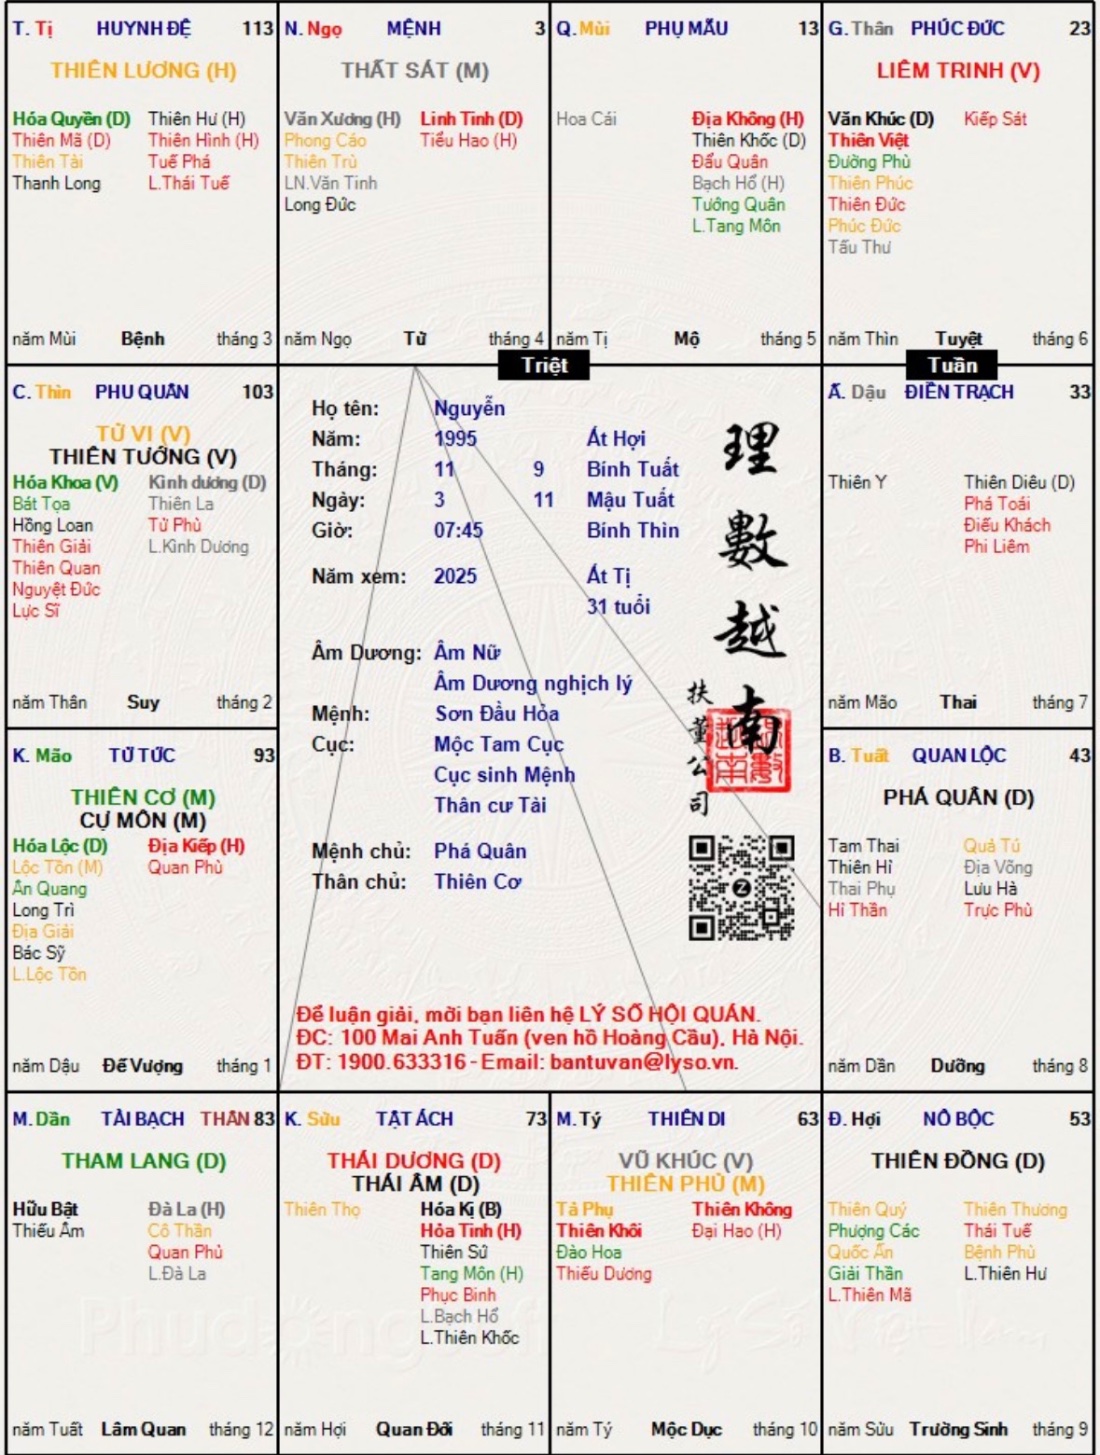 T. Tị HUYNH ĐỆ 113
THIÊN LƯƠNG (H)
Hóa Quyền (D) Thiên Hư (H)
Thiên Mã (D) Thiên Hình (H)
Thiên Tài Tuế Phá
Thanh Long L.Thái Tuế
năm Mùi Bệnh tháng 3
N. Ngọ MỆNH 3
THẤT SÁT (M)
Văn Xương (H) Linh Tinh (D)
Phong Cáo Tiểu Hao (H)
Thiên Trù
LN.Văn Tinh
Long Đức
năm Ngọ Tử tháng 4
Q. Mùi PHỤ MẪU 13
Hoa Cái Địa Không (H)
Thiên Khốc (D)
Đẩu Quân
Bạch Hổ (H)
Tướng Quân
L.Tang Môn
năm Tị Mộ tháng 5
G. Thân PHÚC ĐỨC 23
LIÊM TRINH (V)
Văn Khúc (D) Kiếp Sát
Thiên Việt
Đường Phù
Thiên Phúc
Thiên Đức
Phúc Đức
Tấu Thư
năm Thìn Tuyệt tháng 6
Triệt
Tuần
C. Thìn PHU QUÂN 103
TỬ VI (V)
THIÊN TƯỚNG (V)
Hóa Khoa (V) Kình dương (D)
Bát Tọa Thiên La
Hồng Loan Tử Phù
Thiên Giải L.Kình Dương
Thiên Quan
Nguyệt Đức
Lực Sĩ
năm Thân Suy tháng 2
Họ tên: Nguyễn
Năm: 1995 Ất Hợi
Tháng: 11 9 Bính Tuất
Ngày: 3 11 Mậu Tuất
Giờ: 07:45 Bính Thìn
Năm xem: 2025 Ất Tị
31 tuổi
Âm Dương: Âm Nữ
Âm Dương nghịch lý
Mệnh: Sơn Đầu Hỏa
Cục: Mộc Tam Cục
Cục sinh Mệnh
Thân cư Tài
Mệnh chủ: Phá Quân
Thân chủ: Thiên Cơ
理數越南
扶董公司
Để luận giải, mời bạn liên hệ LÝ SỐ HỘI QUÁN.
ĐC: 100 Mai Anh Tuấn (ven hồ Hoàng Cầu), Hà Nội.
ĐT: 1900.633316 - Email: bantuvan@lyso.vn.
Ấ. Dậu ĐIỀN TRẠCH 33
Thiên Y Thiên Diêu (D)
Phá Toái
Điếu Khách
Phi Liêm
năm Mão Thai tháng 7
K. Mão TỬ TỨC 93
THIÊN CƠ (M)
CỰ MÔN (M)
Hóa Lộc (D) Địa Kiếp (H)
Lộc Tồn (M) Quan Phù
Ân Quang
Long Trì
Địa Giải
Bác Sỹ
L.Lộc Tồn
năm Dậu Đế Vượng tháng 1
B. Tuất QUAN LỘC 43
PHÁ QUÂN (D)
Tam Thai Quả Tú
Thiên Hỉ Địa Võng
Thai Phụ Lưu Hà
Hỉ Thần Trực Phù
năm Dần Dưỡng tháng 8
M. Dần TÀI BẠCH THÂN 83
THAM LANG (D)
Hữu Bật Đà La (H)
Thiếu Âm Cô Thần
Quan Phủ
L.Đà La
năm Tuất Lâm Quan tháng 12
K. Sửu TẬT ÁCH 73
THÁI DƯƠNG (D)
THÁI ÂM (D)
Thiên Thọ Hóa Kị (B)
Hỏa Tinh (H)
Thiên Sứ
Tang Môn (H)
Phục Binh
L.Bạch Hổ
L.Thiên Khốc
năm Hợi Quan Đới tháng 11
M. Tý THIÊN DI 63
VŨ KHÚC (V)
THIÊN PHỦ (M)
Tả Phụ Thiên Không
Thiên Khôi Đại Hao (H)
Đào Hoa
Thiếu Dương
năm Tý Mộc Dục tháng 10
Đ. Hợi NÔ BỘC 53
THIÊN ĐỒNG (D)
Thiên Quý Thiên Thương
Phượng Các Thái Tuế
Quốc Ấn Bệnh Phù
Giải Thần L.Thiên Hư
L.Thiên Mã
năm Sửu Trường Sinh tháng 9